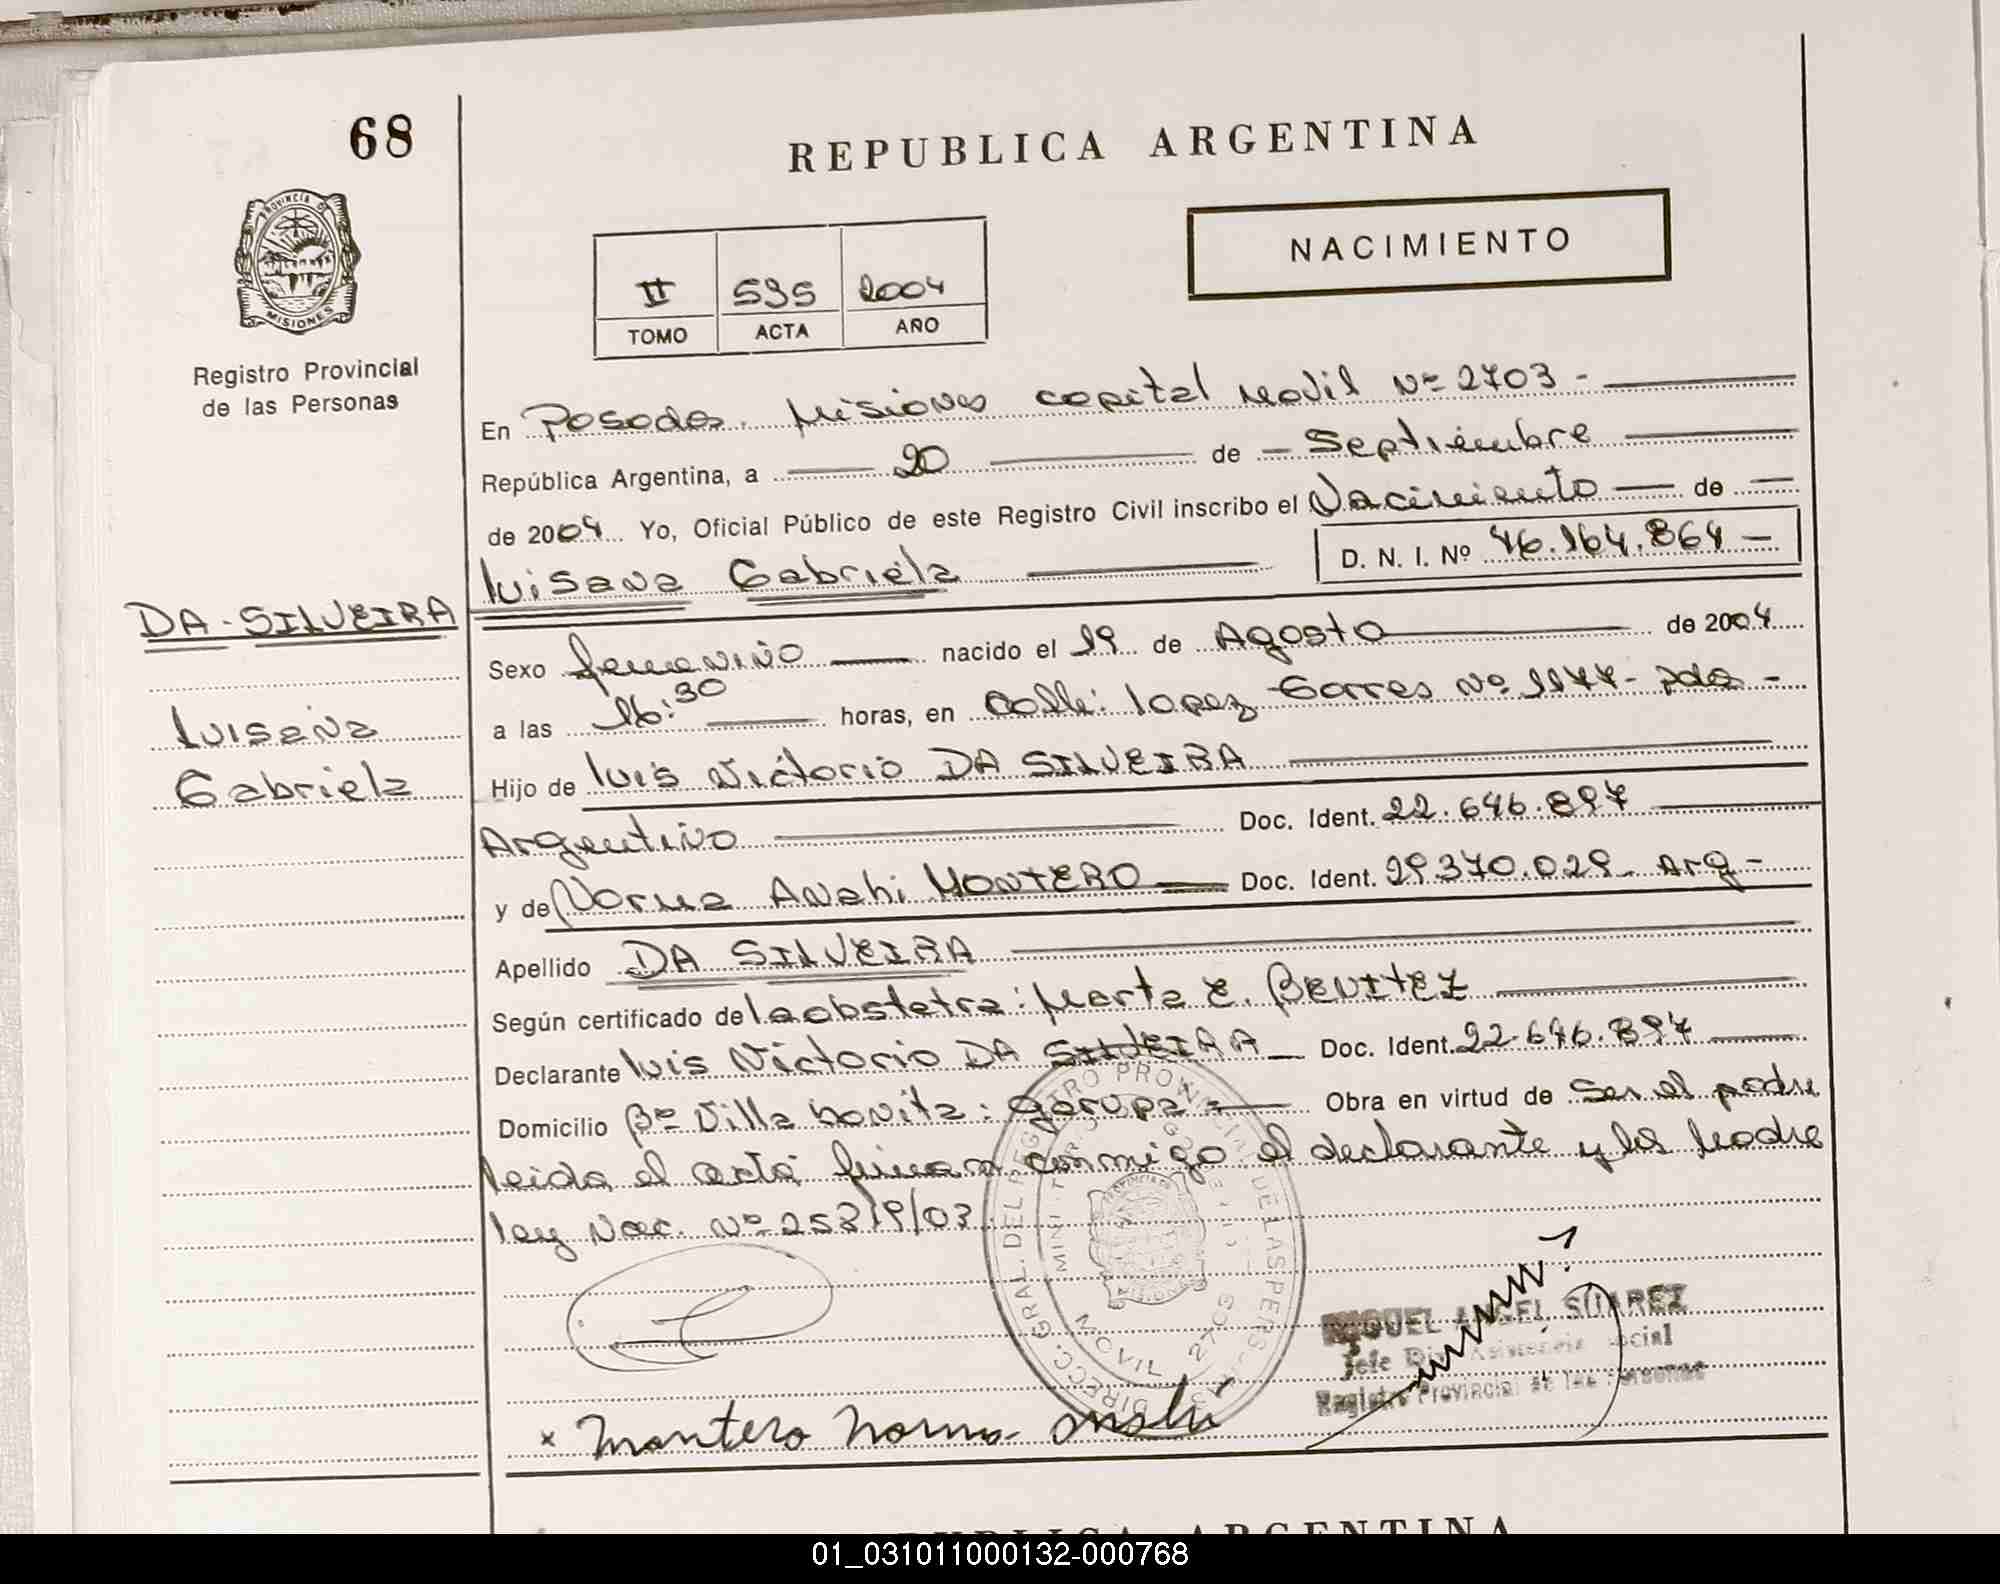 68
REPUBLICA ARGENTINA
PROVINCIA DE
MISIONES
Registro Provincial
de las Personas
II 535 2004
TOMO ACTA AÑO
NACIMIENTO
En Posadas. Misiones capital Movil Nº 2703 -
República Argentina, a 20 de Septiembre
de 2004 Yo, Oficial Público de este Registro Civil inscribo el Nacimiento de
Luisana Gabriela D. N. I. Nº 46.164.864
DA-SILVEIRA
Luisana
Gabriela
Sexo femenino nacido el 19 de Agosto de 2004
a las 16:30 horas, en Calle: Lopez Torres Nº 1177- Pdas -
Hijo de Luis Victorio DA SILVEIRA
Argentino Doc. Ident. 22.646.897
y de Norma Anahi MONTERO Doc. Ident. 29.370.029- Arg -
Apellido DA SILVEIRA
Según certificado de la obstetra: Marta E. BENITEZ
Declarante Luis Victorio DA SILVEIRA Doc. Ident. 22.646.897
Domicilio Bº Villa bonita: garupa - Obra en virtud de ser el padre
leida el acta firman conmigo el declarante y la Madre
ley Nac. Nº 25819/03
DIRECC. GRAL. DEL REGISTRO PROVINCIAL DE LAS PERSONAS
MOVIL 2703
MIGUEL ANGEL SUAREZ
Jefe Div. Asistencia Social
Registro Provincial de las Personas
x Montero Norma Anahi
REPUBLICA ARGENTINA
01_031011000132-000768